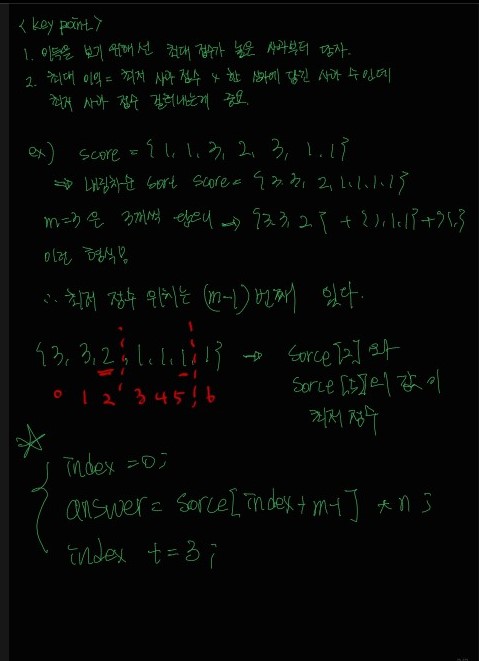 <key point>
1. 이득을 보기 위해선 최대 점수가 높은 사과부터 담자.
2. 최대 이익 = 최저 사과 점수 x 한 상자에 담긴 사과 수인데
최저 사과 점수 골라내는게 중요
ex) score = {1, 1, 3, 2, 3, 1. 1}
⇒ 내림차순 sort score = {3.3, 2, 1, 1, 1, 1}
m=3 은 3개씩 담으니 ⇒ {3,3,2} + {1,1,1} + {1,}
이런 형식
∴ 최저 점수 위치는 (m-1) 번째 있다.
{3, 3, 2, 1, 1, 1, 1} → sorce[2] 와
0 1 2 3 4 5 6
sorce[5]의 값이
최저 점수
index = 0;
answer = sorce[index+m-1] * n ;
index t = 3 ;